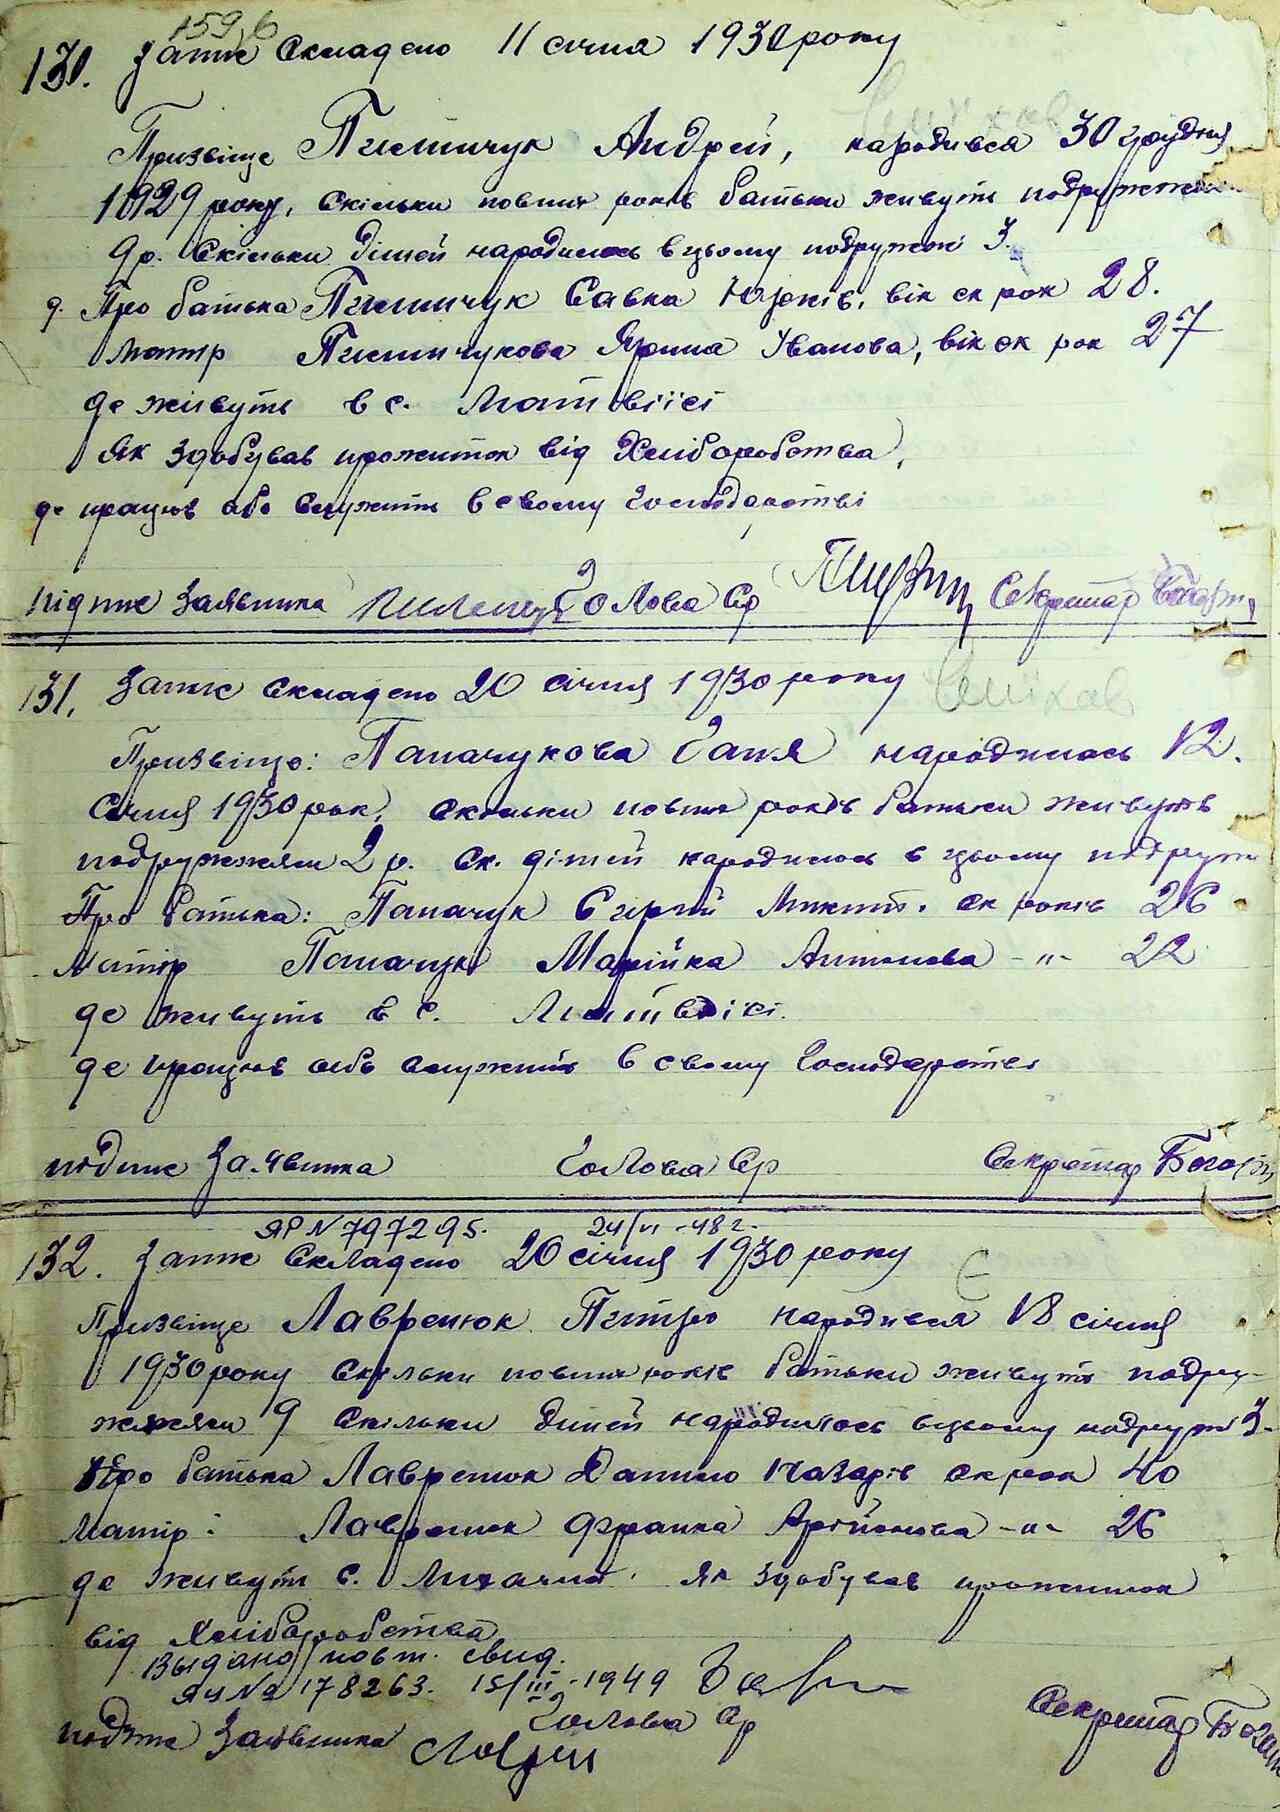 159,б
130. Запис складено 11 січня 1930 року
Призвіще Пилипчук Андрей, народився 30 грудня
1929 року, скільки повних років батьки живуть подружжям
9 р. Скільки дітей народилось в цьому подружжі 3.
Про батька Пилипчук Савка Юрків, вік ск рок 28.
матір Пилипчукова Ярина Іванова, вік ск рок 27
де живуть в с. Матвіїсі
Як здобував прожиток від Хліборобства,
де працює або служить в своему господарстві
підпис Заявника Голова Ср Секретар
131. Запис складено 20 січня 1930 року
Призвіще: Паначукова Ганя народилась 12.
Січня 1930 рок, скільки повних років батьки живуть
подружжям 2 р. Ск. дітей народилось в цьому подруж
Про батька: Паначук Сергій Микит. ск років 26
Матір Паначук Марійка Антонова -"- 22
де живуть в с.
де працює або служить в своему господарстві
подпис Заявника Голова Ср Секретар
ЯР N 797295. 24/VI -48 г.
132. Запис складено 20 січня 1930 року
Призвіще Лавренюк Питро народився 18 січня
1930 року скільки повних років батьки живуть подру-
жжям 9 скільки дитей народилось в цьому подруж 3.
Про батька Лавренюк Данило Назарів ск рок 40
Матір: Лавренюк Франка -"- 26
де живуть с. Як здобував прожиток
від Хліборобства
Выдано повт. свид.
ЯЧ № 178263. 15/III-1949
подпис Заявника Голова Ср Секретар